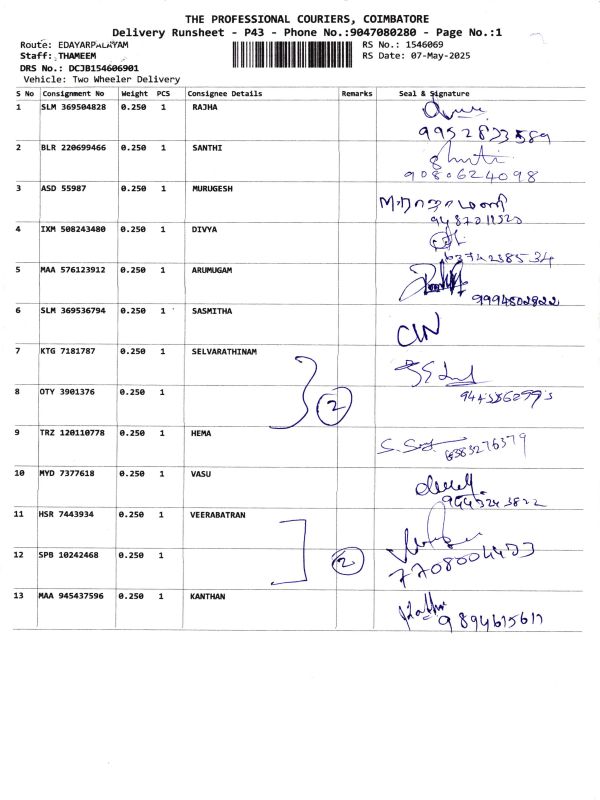 THE PROFESSIONAL COURIERS, COIMBATORE
Delivery Runsheet - P43 - Phone No.:9047080280 - Page No.:1
Route: EDAYARPALAYAM
RS No.: 1546069
Staff: THAMEEM
RS Date: 07-May-2025
DRS No.: DCJB154606901
Vehicle: Two Wheeler Delivery
S No Consignment No Weight PCS Consignee Details Remarks Seal & Signature
1 SLM 369504828 0.250 1 RAJHA
9952833589
2 BLR 220699466 0.250 1 SANTHI
9080624098
3 ASD 55987 0.250 1 MURUGESH
4 IXM 508243480 0.250 1 DIVYA
6374238534
5 MAA 576123912 0.250 1 ARUMUGAM
9994802822
6 SLM 369536794 0.250 1 SASMITHA
7 KTG 7181787 0.250 1 SELVARATHINAM
8 OTY 3901376 0.250 1
2
9 TRZ 120110778 0.250 1 HEMA
6383276379
10 MYD 7377618 0.250 1 VASU
11 HSR 7443934 0.250 1 VEERABATRAN
12 SPB 10242468 0.250 1
2
13 MAA 945437596 0.250 1 KANTHAN